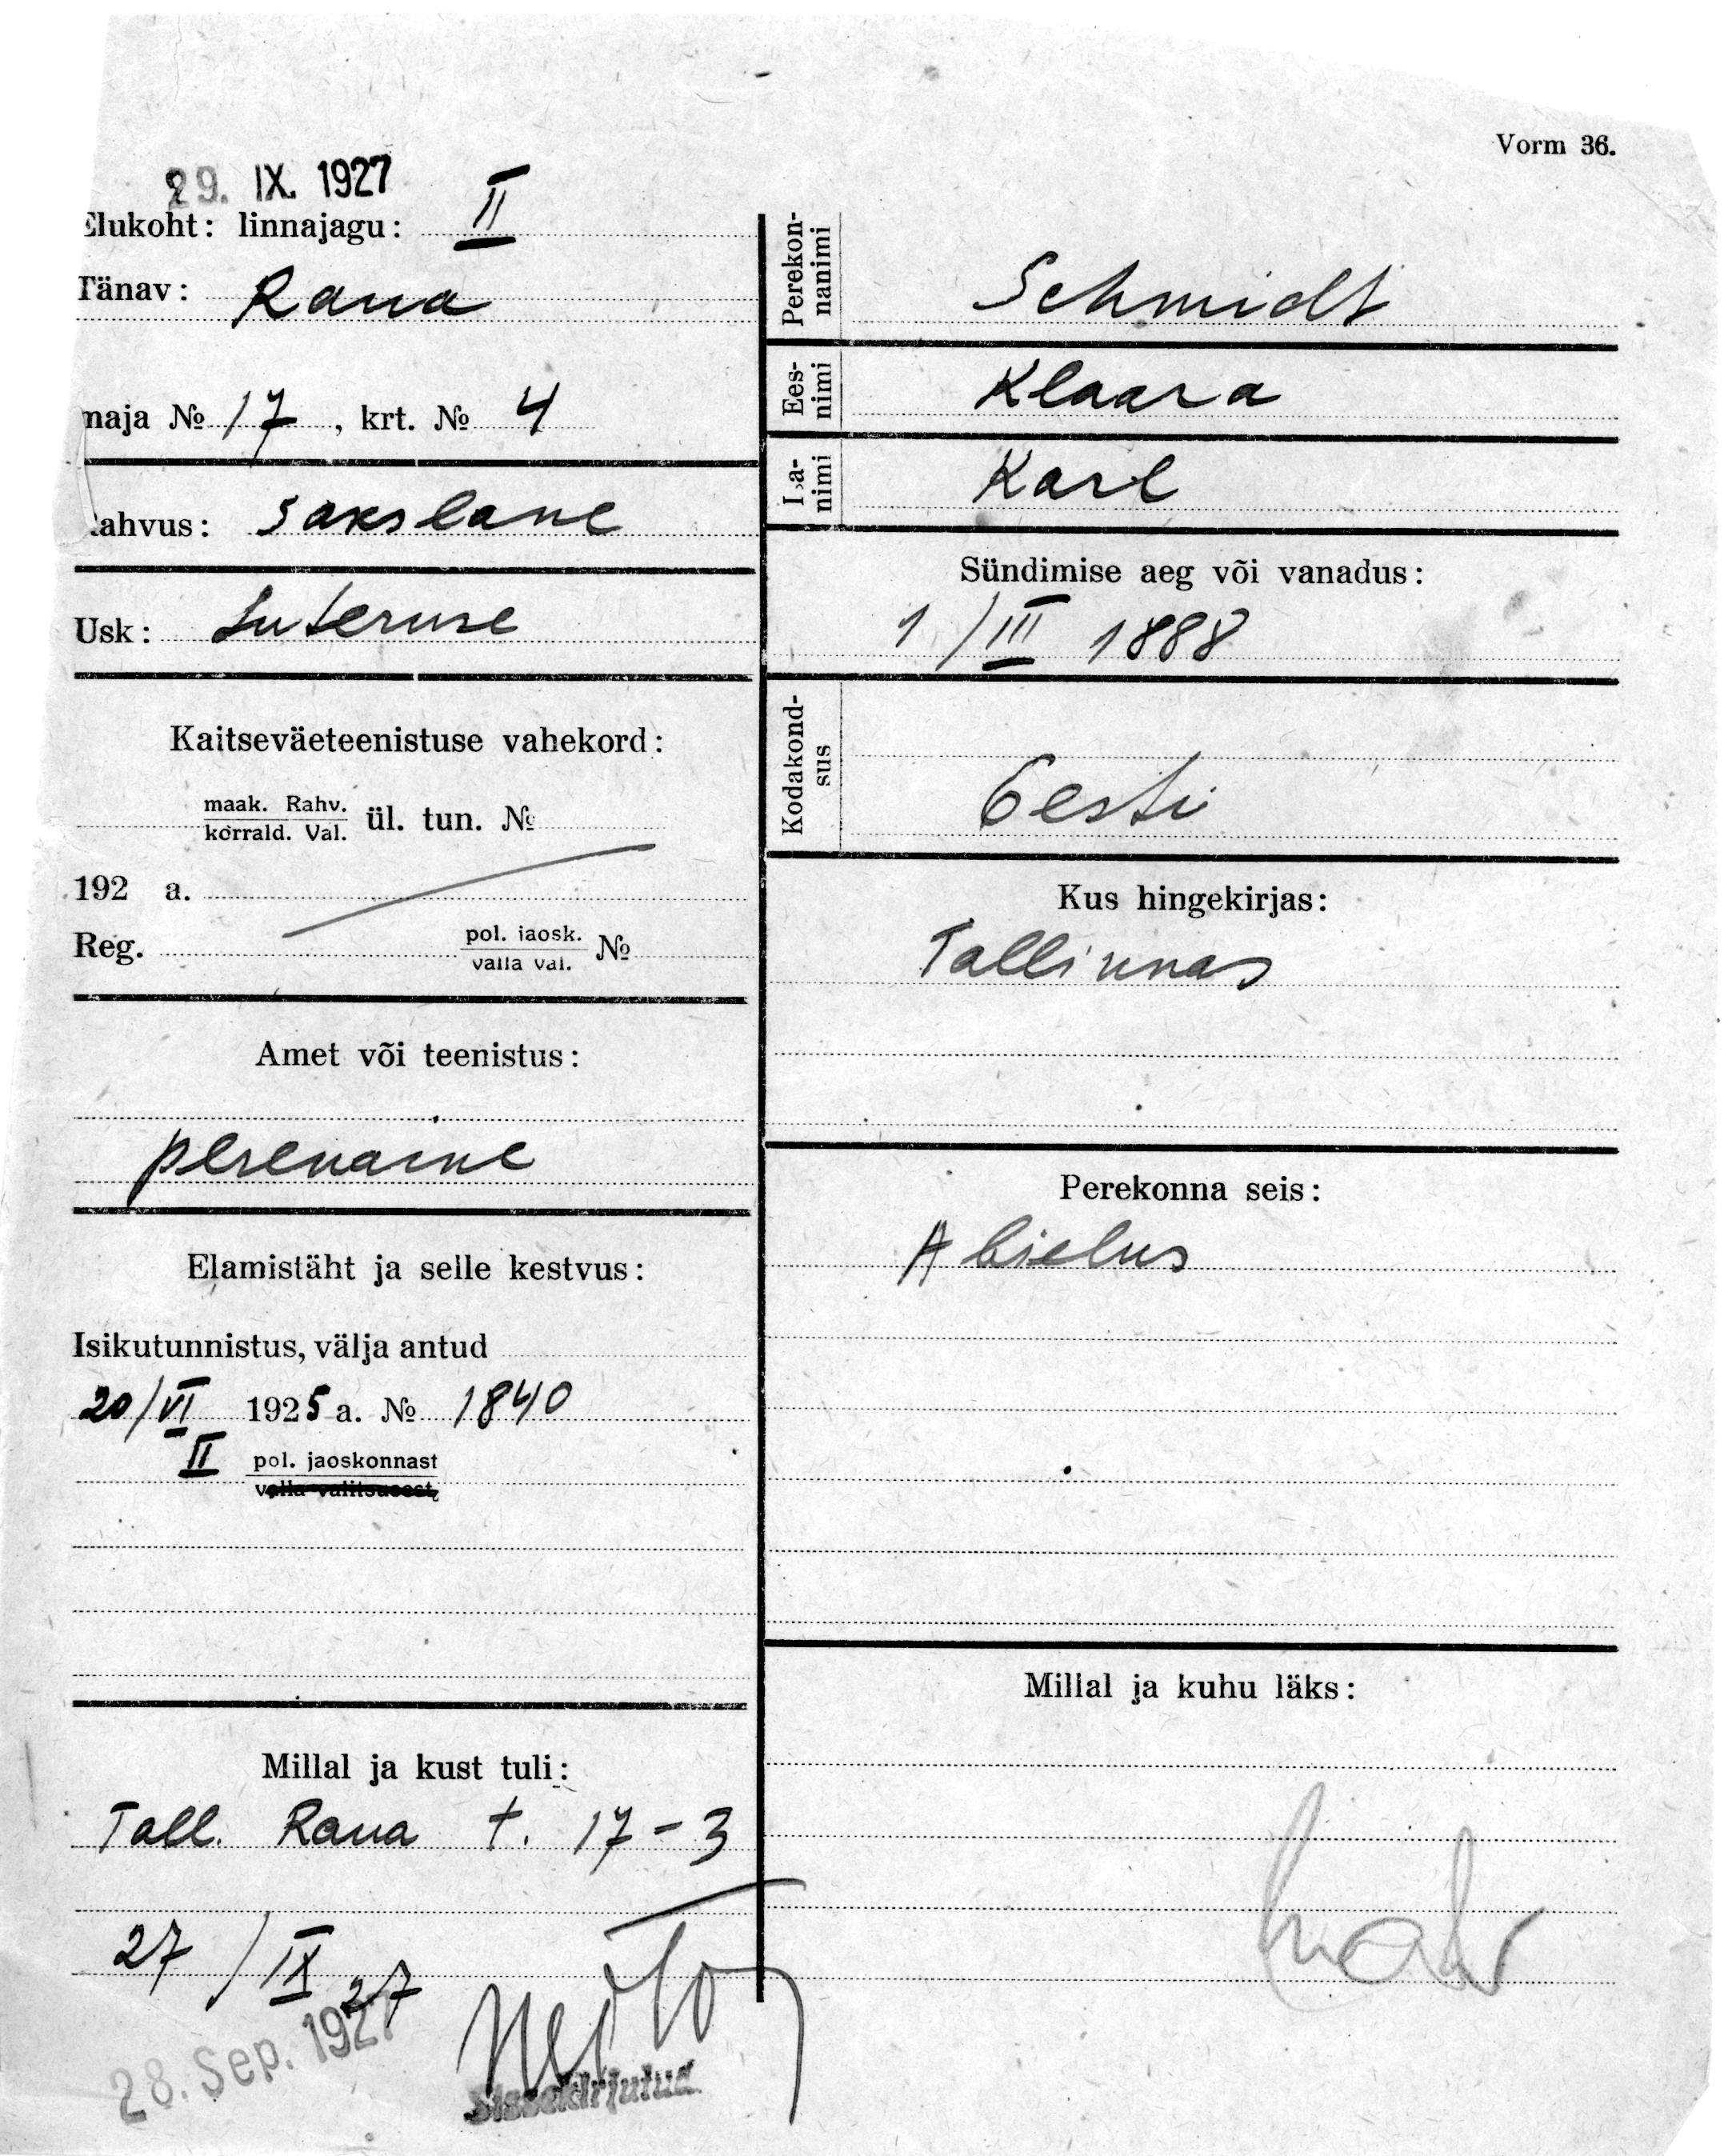 Vorm 36.
29. IX. 1927
Elukoht: linnajagu: II
Tänav: Raua
maja № 17, krt. № 4
Rahvus: sakslane
Usk: Luteruse
Kaitseväeteenistuse vahekord:
maak. Rahv.
korrald. Val. ül. tun. №
192 a.
Reg. pol. jaosk. №
valla val.
Amet või teenistus:
perenaine
Elamistäht ja selle kestvus:
Isikutunnistus, välja antud
20/VI 1925 a. № 1840
II pol. jaoskonnast
valla valitsusest
Millal ja kust tuli:
Tall. Raua t. 17-3
27/IX 27
28. Sep. 1927
Sissekirjutud
Perekon-
nanimi
Schmidt
Ees-
nimi
Klaara
Isa-
nimi
Karl
Sündimise aeg või vanadus:
1/III 1888
Kodakond-
sus
Eesti
Kus hingekirjas:
Tallinnas
Perekonna seis:
Abielus
Millal ja kuhu läks: